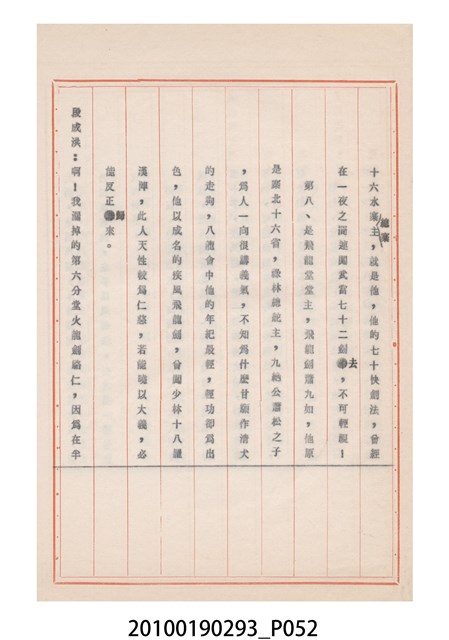 十六水寨主，就是他，他的七十快劍法，曾經
總寨
在一夜之間連闖武當七十二劍，不可輕視！
去
第八、是飛龍堂堂主，飛龍劍蕭九如，他原
是南北十六省，綠林總統主，九絕公蕭松之子
，為人一向很講義氣，不知為什麼甘願作清犬
的走狗，八龍會中他的年紀最輕，輕功卻為出
色，他以成名的疾風飛龍劍，曾闖少林十八羅
漢陣，此人天性較為仁慈，若能喻以大義，必
能反正歸來。
段成洪：啊！我漏掉的第六分堂火龍劍駱仁，因為在半
20100190293_P052